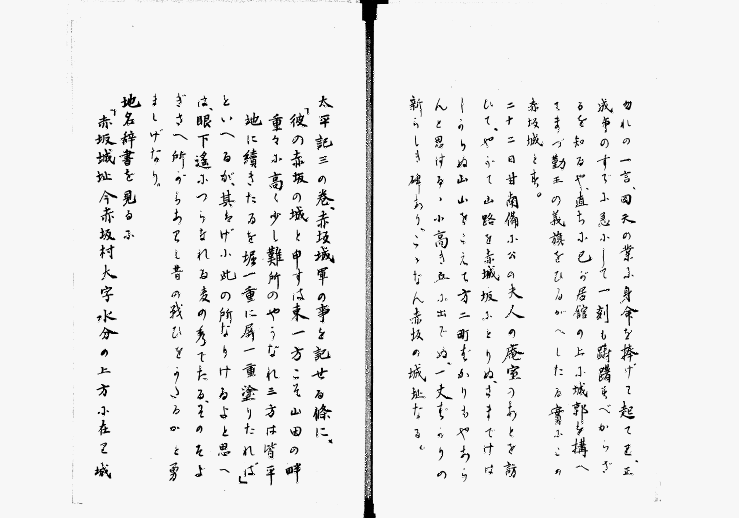 われの一言、回天の業に身命を捧げて起て正、正
成事のすでに急にして一刻も躊躇すべからざ
るを知るや、直ちに己が居館の上に城郭を構へ
てまづ勤王の義旗をひるがへしたる実にこの
赤坂城と す。
二十二日甘南備に公の夫人の庵室のあとを訪
ひて、やがて山路を赤城坂にとりぬ、ままでけは
しからぬ山山をこえて方二町ばかりもやあら
んと思はるゝ小高き丘に出でぬ、一丈ばかりの
新らしき碑あり、こゝなん赤坂の城址なる。
太平記三の巻、赤坂城軍の事を記せる條に、
「彼の赤坂の城と申すは東一方こそ山田の畔
重々に高く少し難所のやうなれ三方は皆平
地に續きたるを堀一重に屏一重塗りたれば」
といへるが、其はげに此の所なりけるよと思へ
ば、眼下遙につらなれる麦の秀でたる、そのそよ
ぎさへ所がらあはれ昔の戦ひをうつるかと勇
ましげなり。
地名辞書を見るに
「赤坂城址 今赤坂村大字水分の上方に在り城